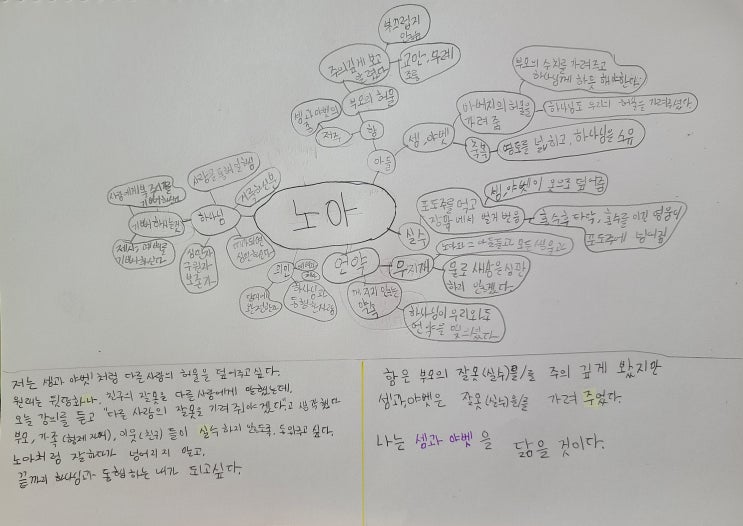 부끄럽지 않음
교만, 무례
조롱
주의깊게 보고
놀렸다
부모의 허물
셈과 야벳의
종
저주
함
아들
셈, 야벳
아버지의 허물을
가려 줌
부모의 수치를 가려주고
하나님께 하듯 해야한다.
하나님도 우리의 허물을 가려주셨다
축복
영토를 넓히고, 하나님을 소유
노아
실수
포도주를 먹고
장막에서 벌거벗음
셈, 야벳이 옷으로 덮어줌
홍수후 타락, 홍수를 이긴 영웅이
포도주에 넘어짐
언약
무지개
노아와 그 아들들과 모든 생물과
물로 세상을 심판
하지 않겠다.
깨지지 않는
약속
하나님이 우리와도
언약을 맺으셨다.
의인
당대에
완전한자
하나님과
동행한 사람
하나님
거룩하신 분
기뻐하시는 것
제사, 예배를
기뻐하신다
심판자
구원자
보호자
저는 셈과 야벳처럼 다른사람의 허물을 덮어주고싶다.
원래는 뒷담하나, 친구의 잘못을 다른 사람에게 말했는데,
오늘 강의를 듣고 "다른 사람의 잘못을 가려 주어야겠다"고 생각했다
부모, 가족 (형제 자매), 이웃(친구) 들이 실수하지 않도록, 도와주고 싶다.
노아처럼 잘하다가 넘어지지 않고,
끝까지 하나님과 동행하는 내가 되고싶다.
함은 부모의 잘못(실수)를/을 주의 깊게 봤지만
셈과야벳은 잘못(실수)을/를 가려 주었다.
나는 셈과 야벳을 닮을 것이다.